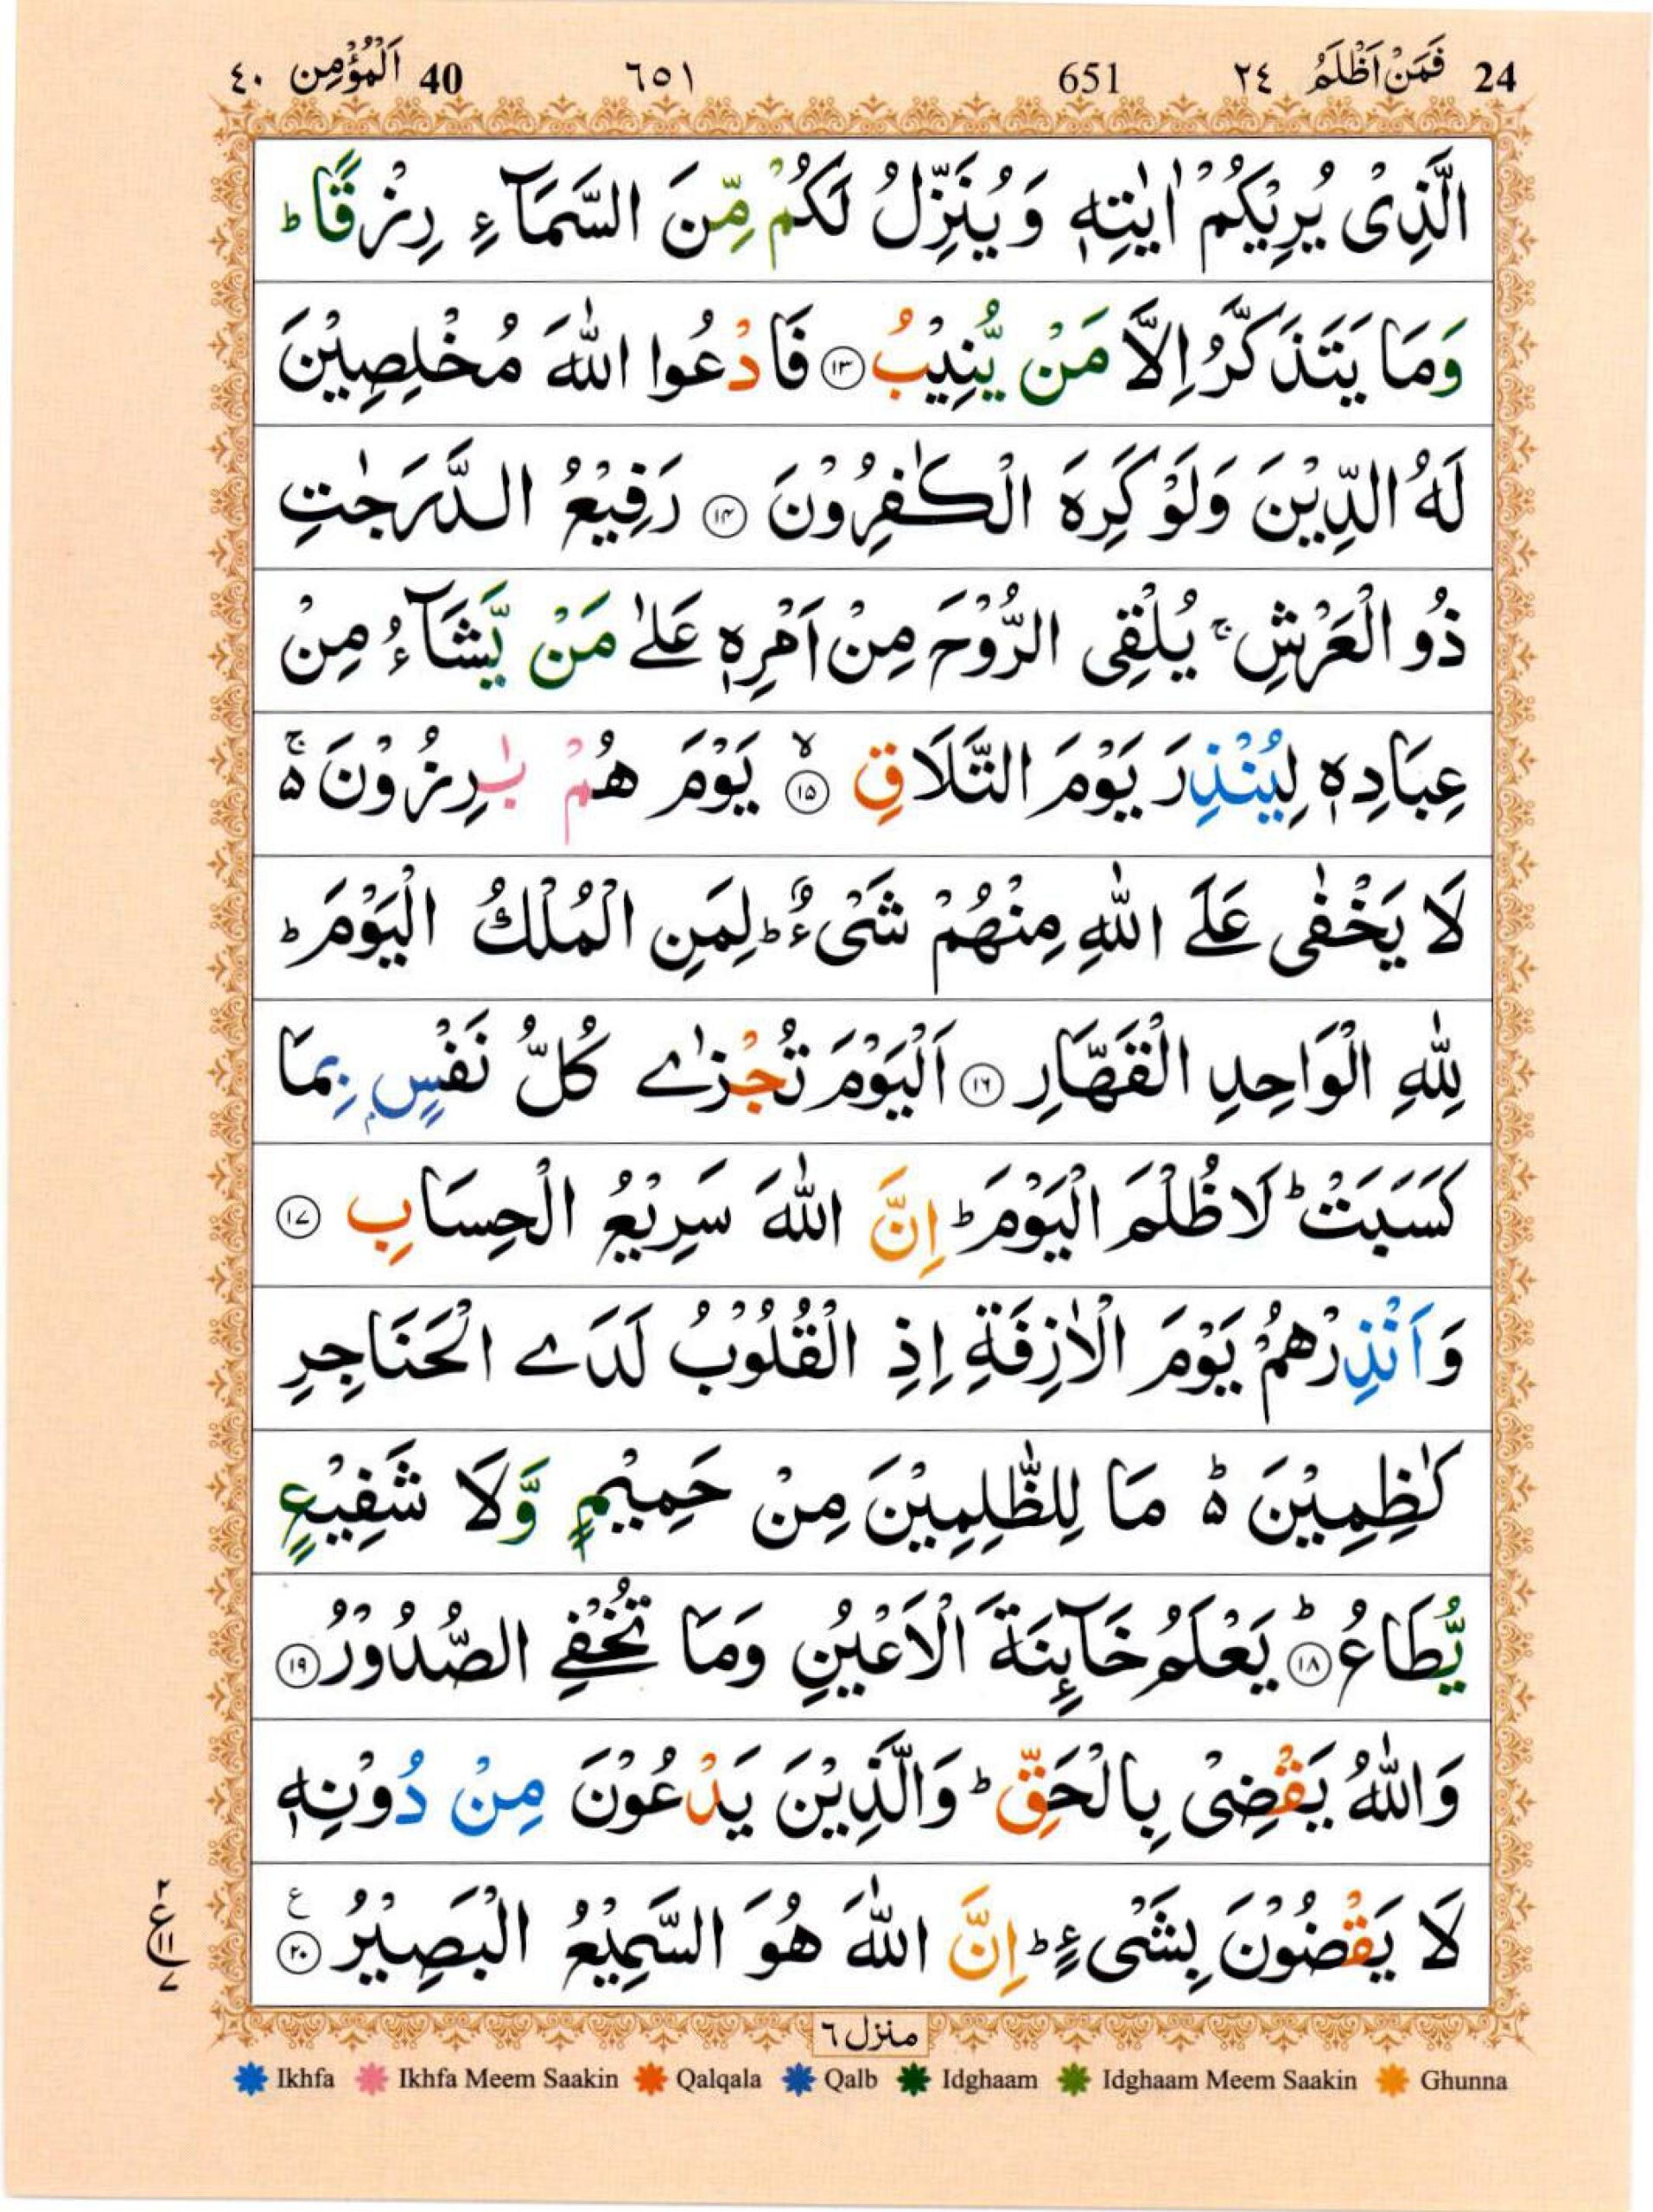 24 فَمَنْ اَظْلَمُ ٢٤ 651 ٦٥١ 40 اَلْمُؤْمِن ٤٠
الَّذِىْ يُرِيْكُمْ اٰيٰتِهٖ وَيُنَزِّلُ لَكُمْ مِّنَ السَّمَآءِ رِزْقًا ؕ
وَمَا يَتَذَكَّرُ اِلَّا مَنْ يُّنِيْبُ ۝۱۳ فَادْعُوا اللّٰهَ مُخْلِصِيْنَ
لَهُ الدِّيْنَ وَلَوْ كَرِهَ الْكٰفِرُوْنَ ۝۱۴ رَفِيْعُ الدَّرَجٰتِ
ذُو الْعَرْشِ ۚ يُلْقِى الرُّوْحَ مِنْ اَمْرِهٖ عَلٰى مَنْ يَّشَآءُ مِنْ
عِبَادِهٖ لِيُنْذِرَ يَوْمَ التَّلَاقِ ۝۱۵ۙ يَوْمَ هُمْ بٰرِزُوْنَ ۵ۚ
لَا يَخْفٰى عَلَى اللّٰهِ مِنْهُمْ شَىْءٌ ؕ لِمَنِ الْمُلْكُ الْيَوْمَ ؕ
لِلّٰهِ الْوَاحِدِ الْقَهَّارِ ۝۱۶ اَلْيَوْمَ تُجْزٰى كُلُّ نَفْسٍۭ بِمَا
كَسَبَتْ ؕ لَا ظُلْمَ الْيَوْمَ ؕ اِنَّ اللّٰهَ سَرِيْعُ الْحِسَابِ ۝۱۷
وَاَنْذِرْهُمْ يَوْمَ الْاٰزِفَةِ اِذِ الْقُلُوْبُ لَدَى الْحَنَاجِرِ
كٰظِمِيْنَ ۵ؕ مَا لِلظّٰلِمِيْنَ مِنْ حَمِيْمٍ وَّلَا شَفِيْعٍ
يُّطَاعُ ۝۱۸ؕ يَعْلَمُ خَآئِنَةَ الْاَعْيُنِ وَمَا تُخْفِى الصُّدُوْرُ ۝۱۹
وَاللّٰهُ يَقْضِىْ بِالْحَقِّ ؕ وَالَّذِيْنَ يَدْعُوْنَ مِنْ دُوْنِهٖ
لَا يَقْضُوْنَ بِشَىْءٍ ؕ اِنَّ اللّٰهَ هُوَ السَّمِيْعُ الْبَصِيْرُ ۝۲۰ ع
۲ ع ۱۱ ۷
منزل ٦
Ikhfa Ikhfa Meem Saakin Qalqala Qalb Idghaam Idghaam Meem Saakin Ghunna